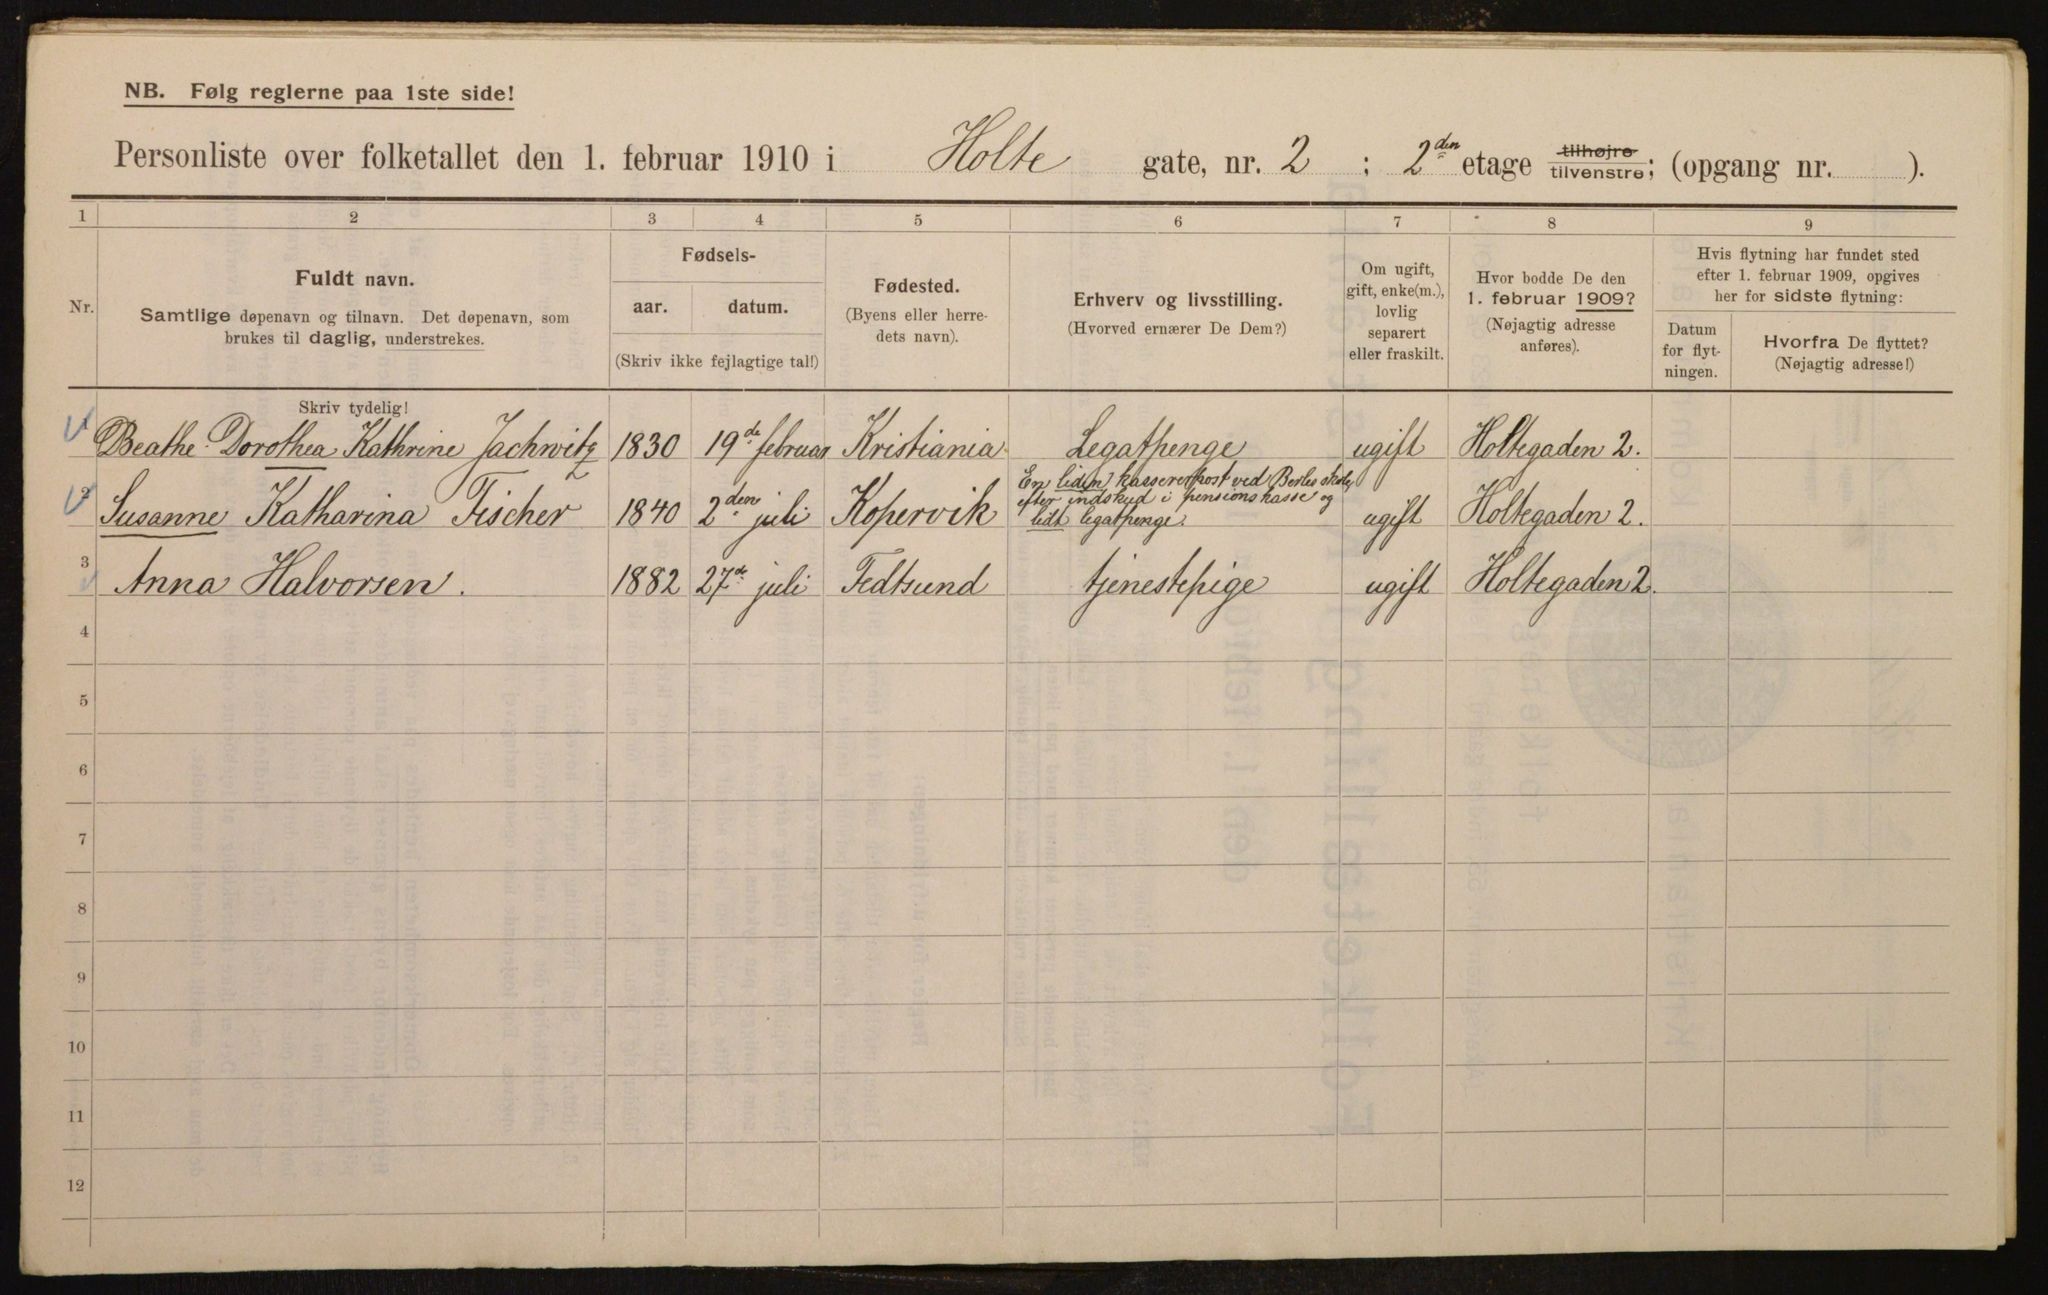 NB. Følg reglerne paa 1ste side!
Personliste over folketallet den 1. februar 1910 i Holte gate, nr. 2 ; 2den etage tilhøjre tilvenstre; (opgang nr. ).
1 2 3 4 5 6 7 8 9
Nr.
Fuldt navn.
Samtlige døpenavn og tilnavn. Det døpenavn, som
brukes til daglig, understrekes.
Fødsels-
aar. datum.
(Skriv ikke fejlagtige tal!)
Fødested.
(Byens eller herre-
dets navn).
Erhverv og livsstilling.
(Hvorved ernærer De Dem?)
Om ugift,
gift, enke(m.),
lovlig
separert
eller fraskilt.
Hvor bodde De den
1. februar 1909?
(Nøjagtig adresse
anføres).
Hvis flytning har fundet sted
efter 1. februar 1909, opgives
her for sidste flytning:
Datum
for flyt-
ningen.
Hvorfra De flyttet?
(Nøjagtig adresse!)
Skriv tydelig!
1 Beathe Dorothea Kathrine Jachwitz 1830 19de februar Kristiania Legatpenge ugift Holtegaden 2.
2 Susanne Katharina Fischer 1840 2den juli Kopervik
En liden kassererpost ved Berles skole,
efter indskud i pensionskasse og
lidt legatpenge.
ugift Holtegaden 2.
3 Anna Halvorsen. 1882 27de juli Fedtsund tjenestepige ugift Holtegaden 2.
4
5
6
7
8
9
10
11
12